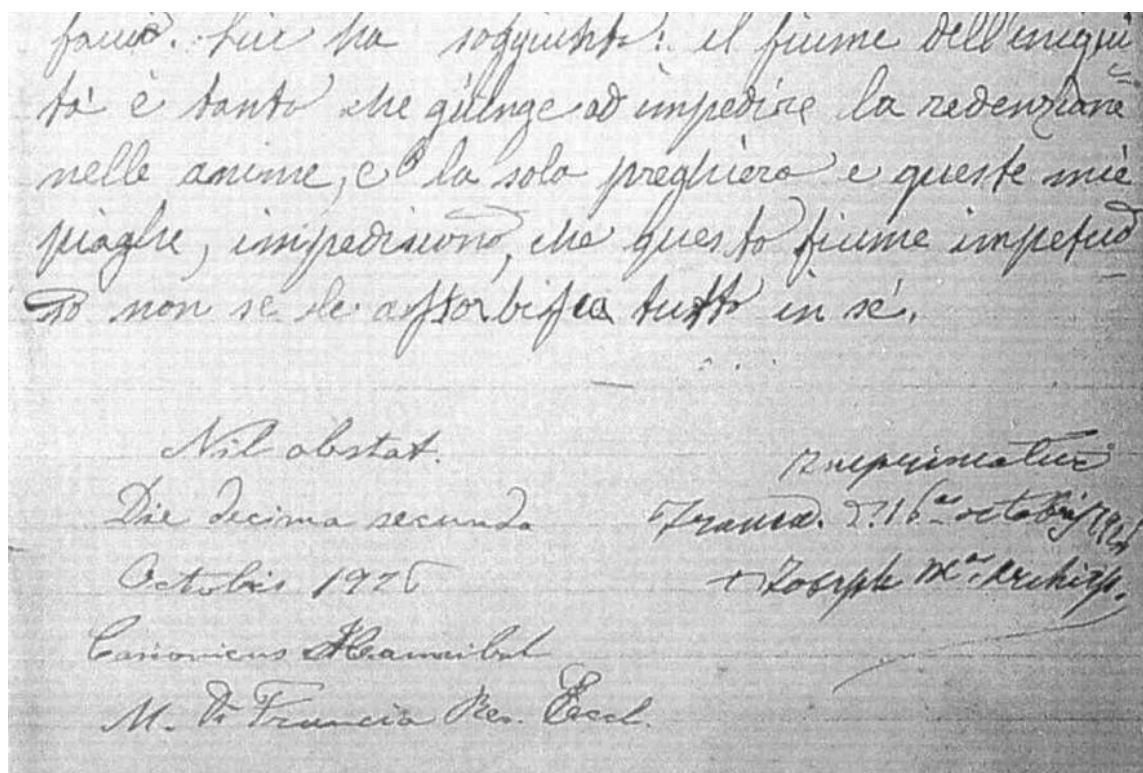 ha soggiunto: il fiume dell'iniqui
tà è tanto che giunge ad impedire la redenzione
nelle anime, e la sola preghiera e queste mie
piaghe, impediscono, che questo fiume impetuo
so non se le assorbisca tutto in sé.
Nil obstat.
Die decima secunda
Octobris 1926
Canonicus Hannibal
M. Di Francia Rev. Eccl.
Imprimatur
octobris 1926
+ Joseph M.a Archiep.